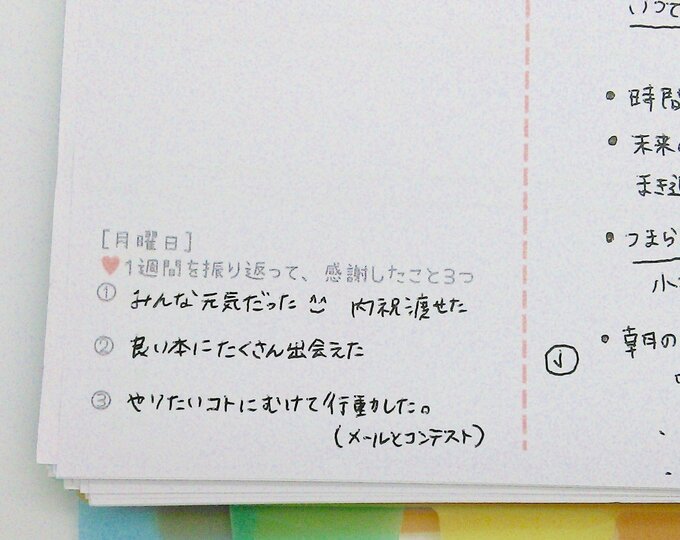 [月曜日]
♥1週間を振り返って、感謝したこと3つ
① みんな元気だった 内祝渡せた
② 良い本にたくさん出会えた
③ やりたいコトにむけて行動した。
(メールとコンテスト)
いって
• 時間
• 未来の
まき
• つまら
• 朝月の